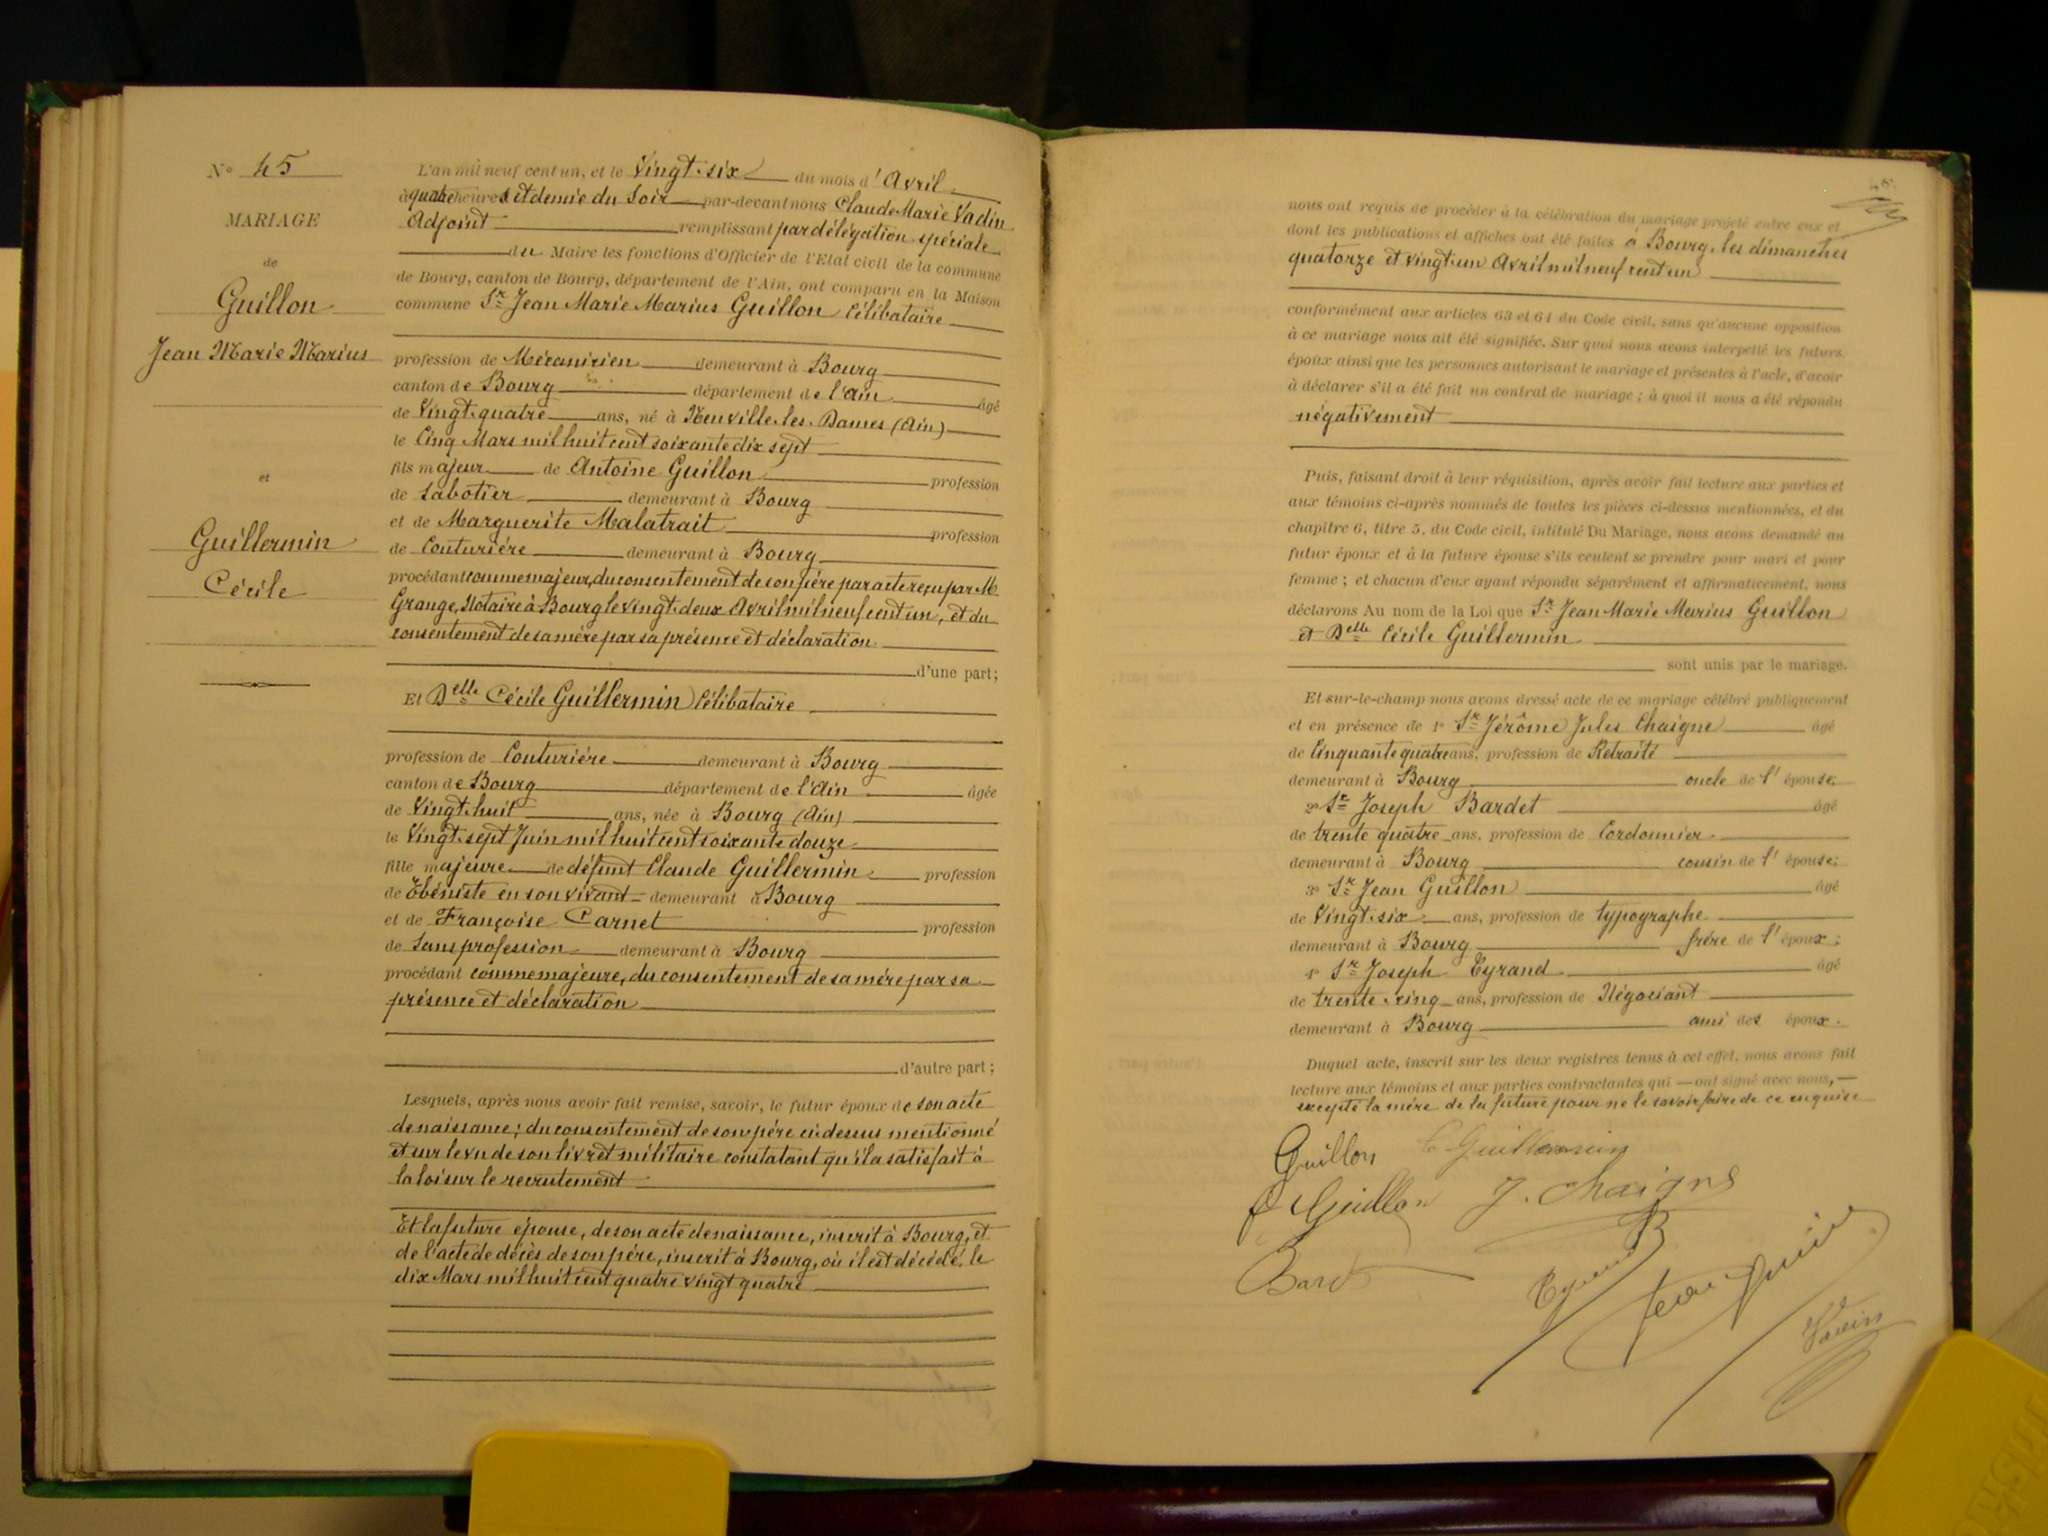 N° 45
MARIAGE
de
Guillon
Jean Marie Marius
et
Guillermin
Cécile
L'an mil neuf cent un, et le Vingt-six du mois d'Avril
à quatre heures et demie du Soir par-devant nous Claude Marie Vadin
Adjoint remplissant par délégation spéciale
du Maire les fonctions d'Officier de l'Etat civil de la commune
de Bourg, canton de Bourg, département de l'Ain, ont comparu en la Maison
commune Sr Jean Marie Marius Guillon célibataire
profession de Mécanicien demeurant à Bourg
canton de Bourg département de l'Ain âgé
de Vingt-quatre ans, né à Neuville-les-Dames (Ain)
le Cinq Mars mil huit cent soixante dix sept
fils majeur de Antoine Guillon profession
de Sabotier demeurant à Bourg
et de Marguerite Malatrait profession
de Couturière demeurant à Bourg
procédant comme majeur, du consentement de son père par acte reçu par M
Grange, Notaire à Bourg le vingt-deux Avril mil neuf cent un, et du
consentement de sa mère par sa présence et déclaration
d'une part;
Et Delle Cécile Guillermin célibataire
profession de Couturière demeurant à Bourg
canton de Bourg département de l'Ain âgée
de Vingt-huit ans, née à Bourg (Ain)
le Vingt-sept Juin mil huit cent soixante douze
fille majeure de défunt Claude Guillermin profession
de Ebéniste en son vivant demeurant à Bourg
et de Françoise Carnet profession
de Sans profession demeurant à Bourg
procédant comme majeure, du consentement de sa mère par sa
présence et déclaration
d'autre part;
Lesquels, après nous avoir fait remise, savoir, le futur époux de son acte
de naissance; du consentement de son père ci-dessus mentionné
et sur le vu de son livret militaire constatant qu'il a satisfait à
la loi sur le recrutement
Et la future épouse, de son acte de naissance, inscrit à Bourg, et
de l'acte de décès de son père, inscrit à Bourg, où il est décédé, le
dix Mars mil huit cent quatre vingt quatre
nous ont requis de procéder à la célébration du mariage projeté entre eux et
dont les publications et affiches ont été faites à Bourg, les dimanches
quatorze et vingt-un Avril mil neuf cent un
conformément aux articles 63 et 64 du Code civil, sans qu'aucune opposition
à ce mariage nous ait été signifiée. Sur quoi nous avons interpellé les futurs
époux ainsi que les personnes autorisant le mariage et présentes à l'acte, d'avoir
à déclarer s'il a été fait un contrat de mariage; à quoi il nous a été répondu
négativement
Puis, faisant droit à leur réquisition, après avoir fait lecture aux parties et
aux témoins ci-après nommés de toutes les pièces ci-dessus mentionnées, et du
chapitre 6, titre 5, du Code civil, intitulé Du Mariage, nous avons demandé au
futur époux et à la future épouse s'ils veulent se prendre pour mari et pour
femme; et chacun d'eux ayant répondu séparément et affirmativement, nous
déclarons Au nom de la Loi que Sr Jean Marie Marius Guillon
et Delle Cécile Guillermin
sont unis par le mariage.
Et sur-le-champ nous avons dressé acte de ce mariage célébré publiquement
et en présence de 1° Sr Jérôme Jules Chaigne âgé
de Cinquante quatre ans, profession de Retraité
demeurant à Bourg oncle de l'épouse;
2° Sr Joseph Bardet âgé
de trente quatre ans, profession de Cordonnier
demeurant à Bourg cousin de l'épouse;
3° Sr Jean Guillon âgé
de Vingt-six ans, profession de typographe
demeurant à Bourg frère de l'époux;
4° Sr Joseph Eyrand âgé
de trente-cinq ans, profession de Négociant
demeurant à Bourg ami des époux.
Duquel acte, inscrit sur les deux registres tenus à cet effet, nous avons fait
lecture aux témoins et aux parties contractantes qui ont signé avec nous,
excepté la mère de la future pour ne le savoir faire de ce enquise
Guillon C Guillermin
Guillon J. Chaigne